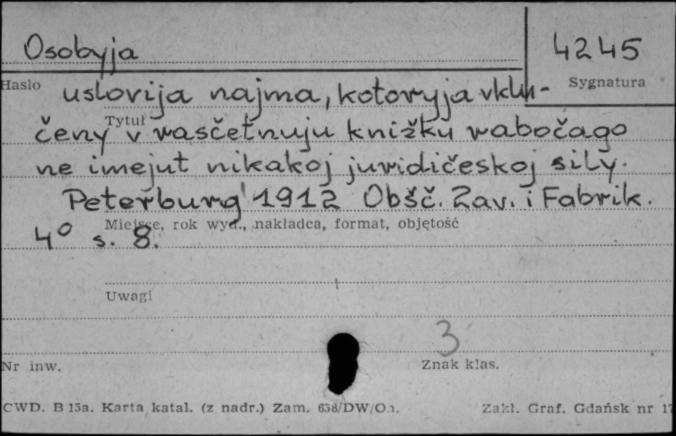 Osobyja
4245
Hasło
Sygnatura
uslovija najma, kotoryja vklju-
Tytuł
čeny v rasčetnuju knižku rabočago
ne imejut nikakoj juridičeskoj sily.
Peterburg 1912 Obšč. Zav. i Fabrik.
Miejsce, rok wyd., nakładca, format, objętość
4° s. 8.
Uwagi
3
Nr inw.
Znak klas.
CWD. B 15a. Karta katal. (z nadr.) Zam.
Zakł. Graf. Gdańsk nr